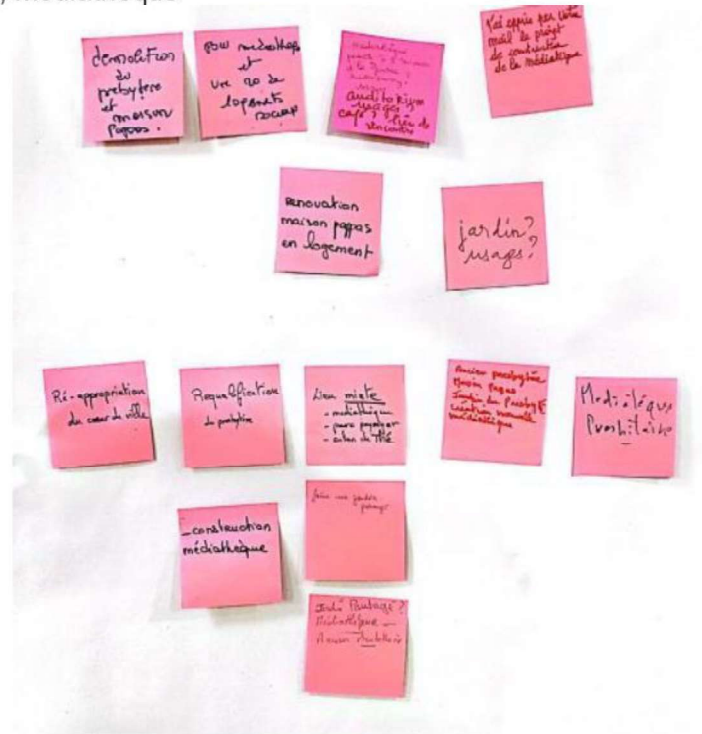 démolition
du
presbytère
et
maison
Pagas.
pour mediathèque
et
une 20 de
logements
sociaux
auditorium
usages ?
café ? lieu de
rencontre
J'ai appris par votre
mail le projet
de construction
de la Médiathèque
renovation
maison pagas
en logement
jardin ?
usages ?
Ré-appropriation
du cœur de ville
Requalification
du presbytère
Lieu mixte
- mediathèque
- parc paysager
- salon de thé
Ancien presbytère
Maison Pagas
Jardin du Presbytè
création nouvelle
médiathèque
Mediatèque
_construction
médiathèque
faire un jardin
partagé
Jardin Partagé ?
Médiathèque